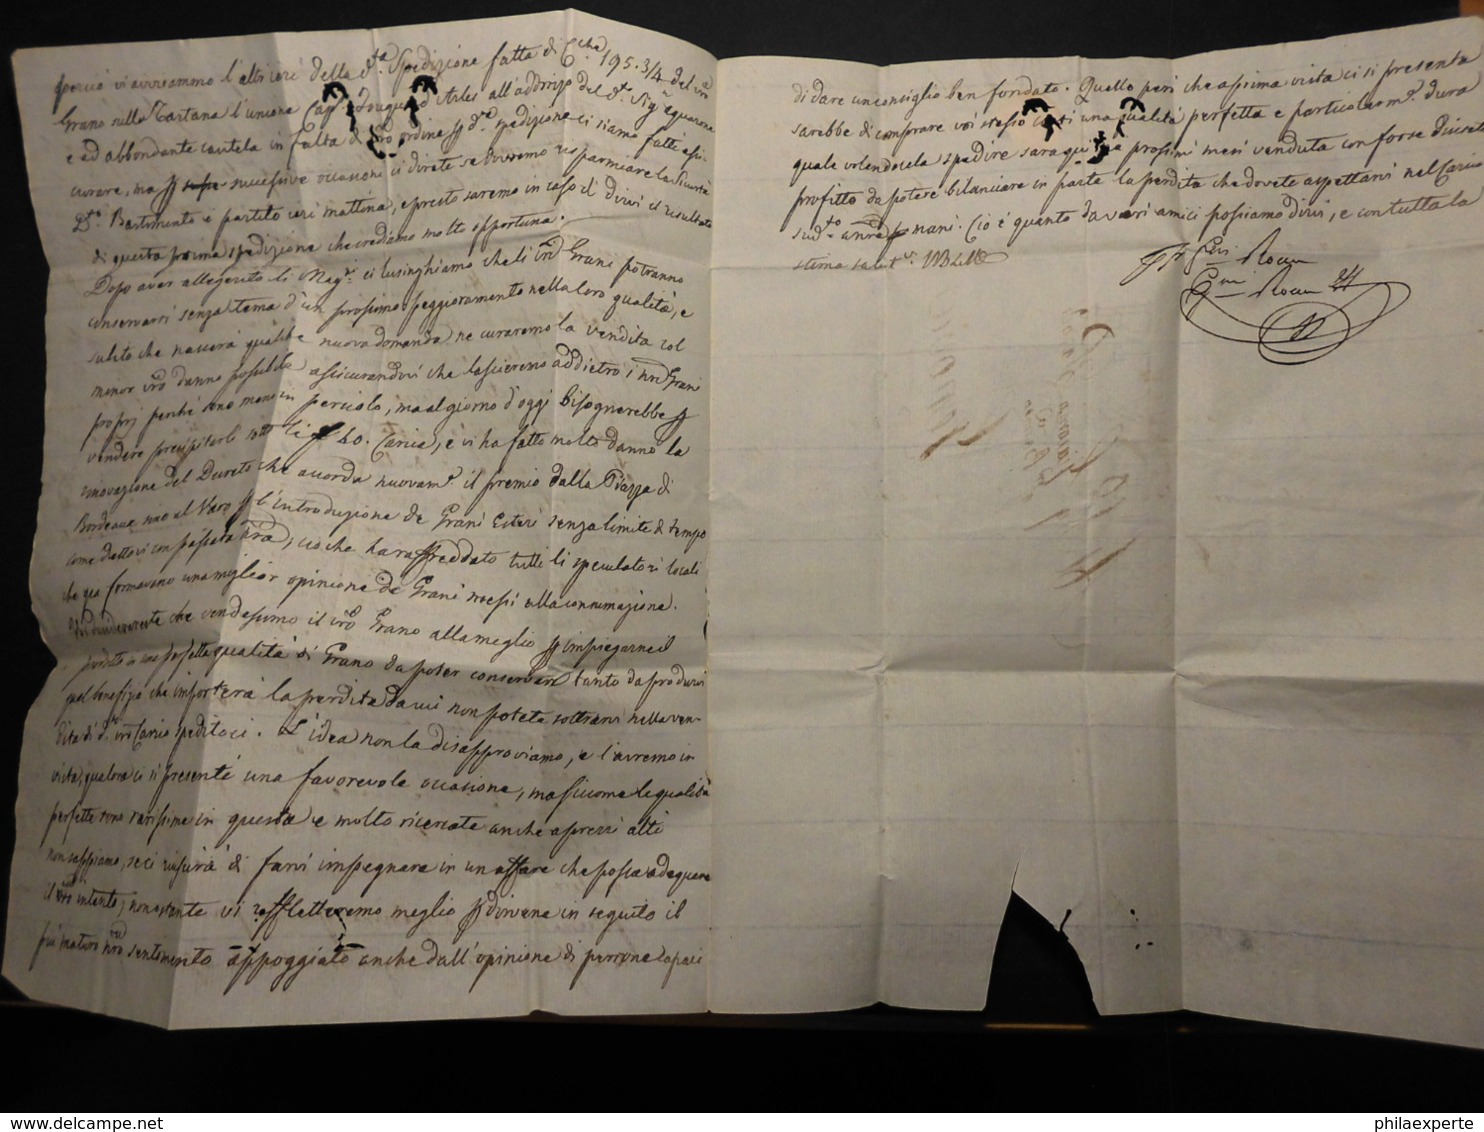 perciò vi avvisammo l'altr'ieri della d.ta Spedizione fatta di C.che 195.3/4 del vro
Grano sulla Tartana l'unione Cap. d'Arles all'addrizzo del d.to Sig.
e ad abbondante cautela in falta di vro ordine p d.a spedizione ci siamo fatti assi-
curare, ma p successive occasioni ci direte se dovremo risparmiare la Sicurtà
D.to Bastimento è partito ieri mattina, e presto saremo in caso di dirvi il risultato
di questa prima spedizione che crediamo molto opportuna.
Dopo aver alleggerito li Mag.ni ci lusinghiamo che li vri Grani potranno
conservarsi senza tema d'un prossimo peggioramento nella loro qualità, e
subito che nascerà qualche nuova domanda ne curaremo la vendita col
minor vro danno possibile assicurandovi che lascieremo addietro i nri Grani
proprj perché sono meno in pericolo, ma al giorno d'oggi bisognerebbe p
vendere precipitarli sotto li 40. Carica, e vi ha fatto molto danno la
rinovazione del Decreto che accorda nuovam.e il premio dalla Piazza di
Bordeaux sino al Varo p l'introduzione de Grani Esteri senza limite di tempo
come dettovi con passata nra, ciò che ha raffreddato tutti li speculatori locali
che già formavano una miglior opinione de Grani messi alla consumazione.
che vendessimo il vro Grano alla meglio p impiegarne il
prodotto in una perfetta qualità di Grano da poter conservarsi tanto da produrvi
quel benefizio che importerà la perdita da cui non potete sottrarvi nella ven-
dita di d.to vro Carico speditoci. L'idea non la disapproviamo, e l'avremo in
vista, qualora ci si presenti una favorevole occasione, ma siccome le qualità
perfette sono rarissime in questa e molto ricercate anche a prezzi alti
non sappiamo, se ci riuscirà di farvi impegnare in un affare che possa adequare
il vro intento, nonostante vi rifletteremo meglio p dirvene in seguito il
più maturo nro sentimento appoggiato anche dall'opinione di persone capaci
di dare un consiglio ben fondato. Quello però che a prima vista ci si presenta
sarebbe di comprare voi stesso costì una qualità perfetta e particolarm.e dura
quale volendocela spedire sarà qui prossimi mesi venduta con forse discreto
profitto da potere bilanciare in parte la perdita che dovete aspettarvi nel Carico
sud.to Ciò è quanto da veri amici possiamo dirvi, e con tutta la
stima salut.vi
F.lli Rocca
Rocca
philaexperte